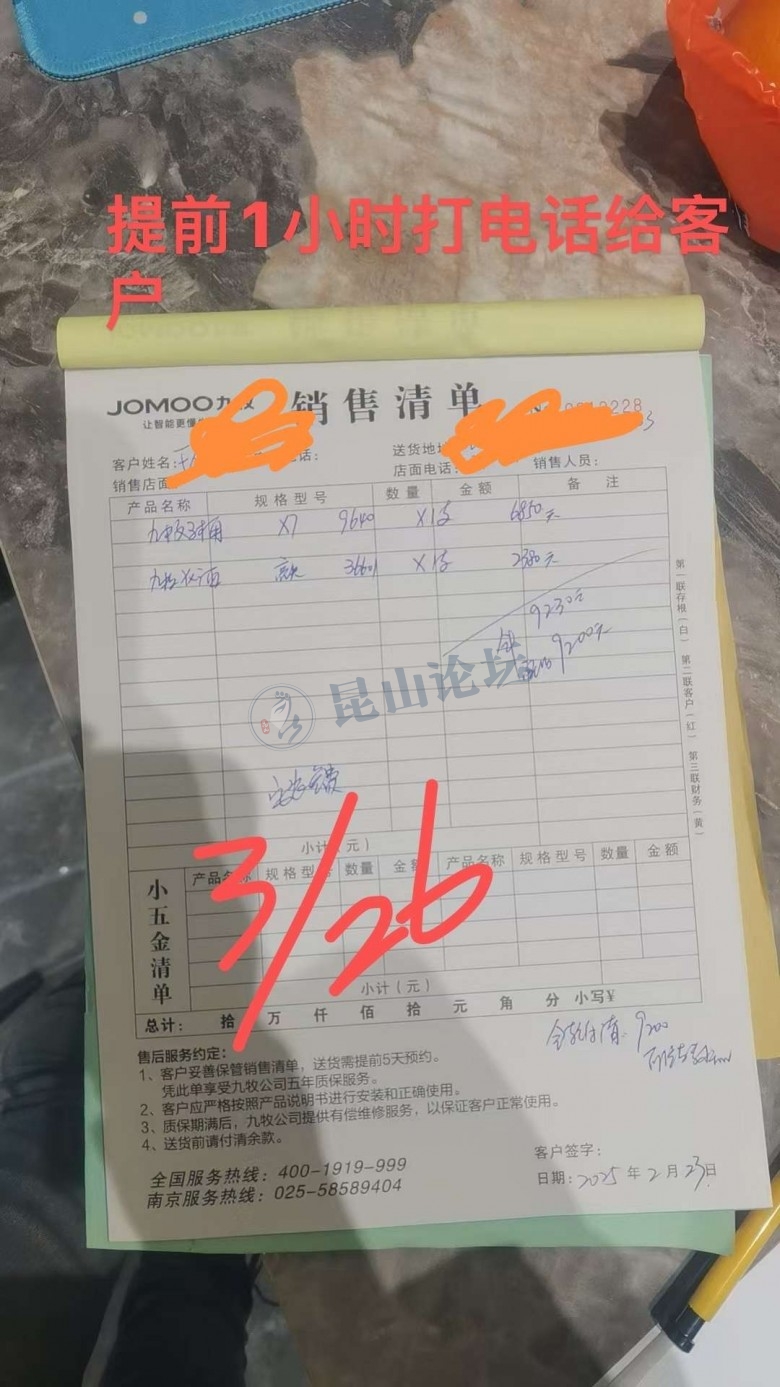 提前1小时打电话给客
户
JOMOO九牧 销售清单
让智能更懂
0228
客户姓名: 电话: 送货地址
销售店面 店面电话: 销售人员:
产品名称 规格型号 数量 金额 备注
X7 9640 X1 6850元
3660 X1 2380元
9230元
9200元
昆山论坛
第一联存根(白) 第二联客户(红) 第三联财务(黄)
小计(元)
3/26
小五金清单
产品名称 规格型号 数量 金额 产品名称 规格型号 数量 金额
小计(元)
总计: 拾 万 仟 佰 拾 元 角 分 小写¥
全款付清 9200
售后服务约定:
1、客户妥善保管销售清单，送货需提前5天预约。
凭此单享受九牧公司五年质保服务。
2、客户应严格按照产品说明书进行安装和正确使用。
3、质保期满后，九牧公司提供有偿维修服务，以保证客户正常使用。
4、送货前请付清余款。
客户签字:
全国服务热线: 400-1919-999
日期: 2025 年 2 月 23 日
南京服务热线: 025-58589404